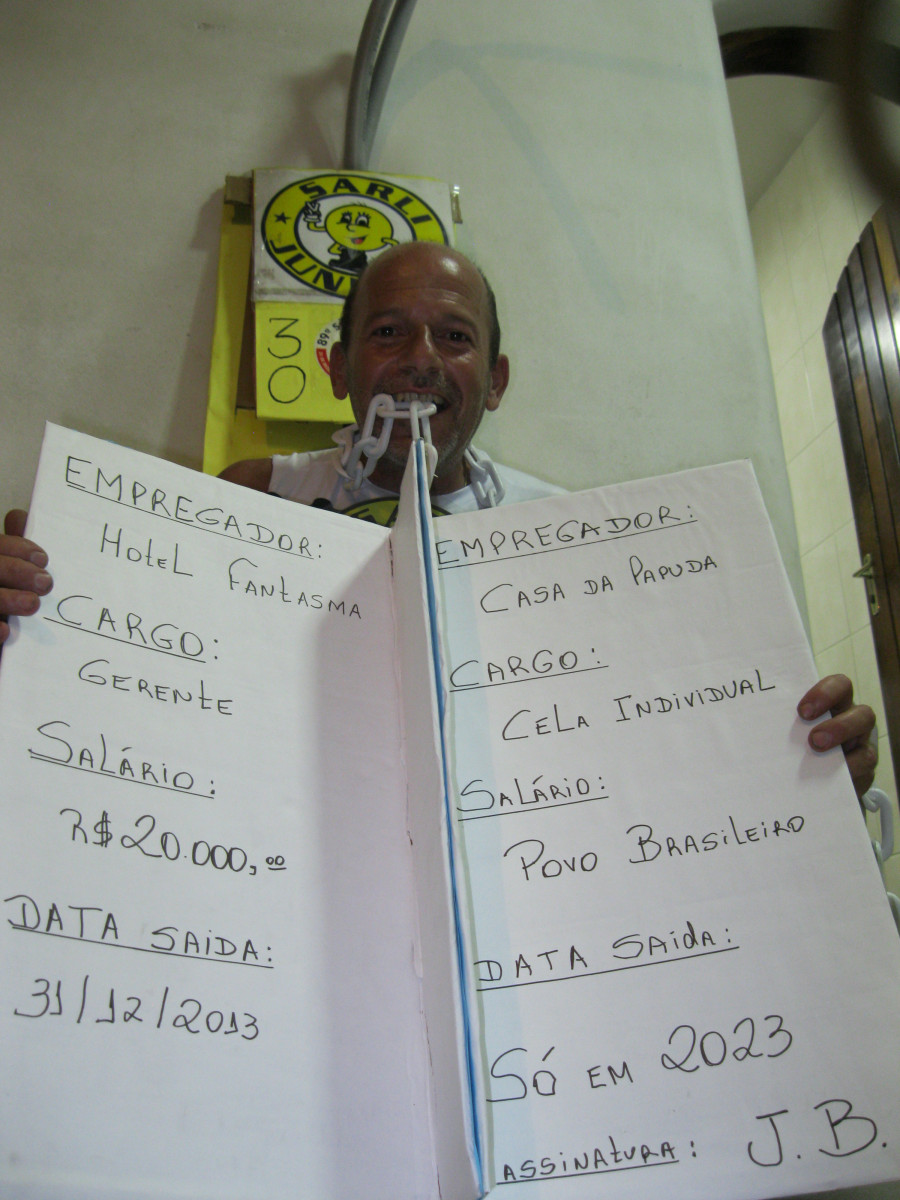 SARLI
JUN
30
89º S
EMPREGADOR:
HOTEL FANTASMA
CARGO:
GERENTE
SALÁRIO:
R$20.000,00
DATA SAIDA:
31/12/2013
EMPREGADOR:
CASA DA PAPUDA
CARGO:
CELA INDIVIDUAL
SALÁRIO:
POVO BRASILEIRO
DATA SAÍDA:
SÓ EM 2023
ASSINATURA: J.B.